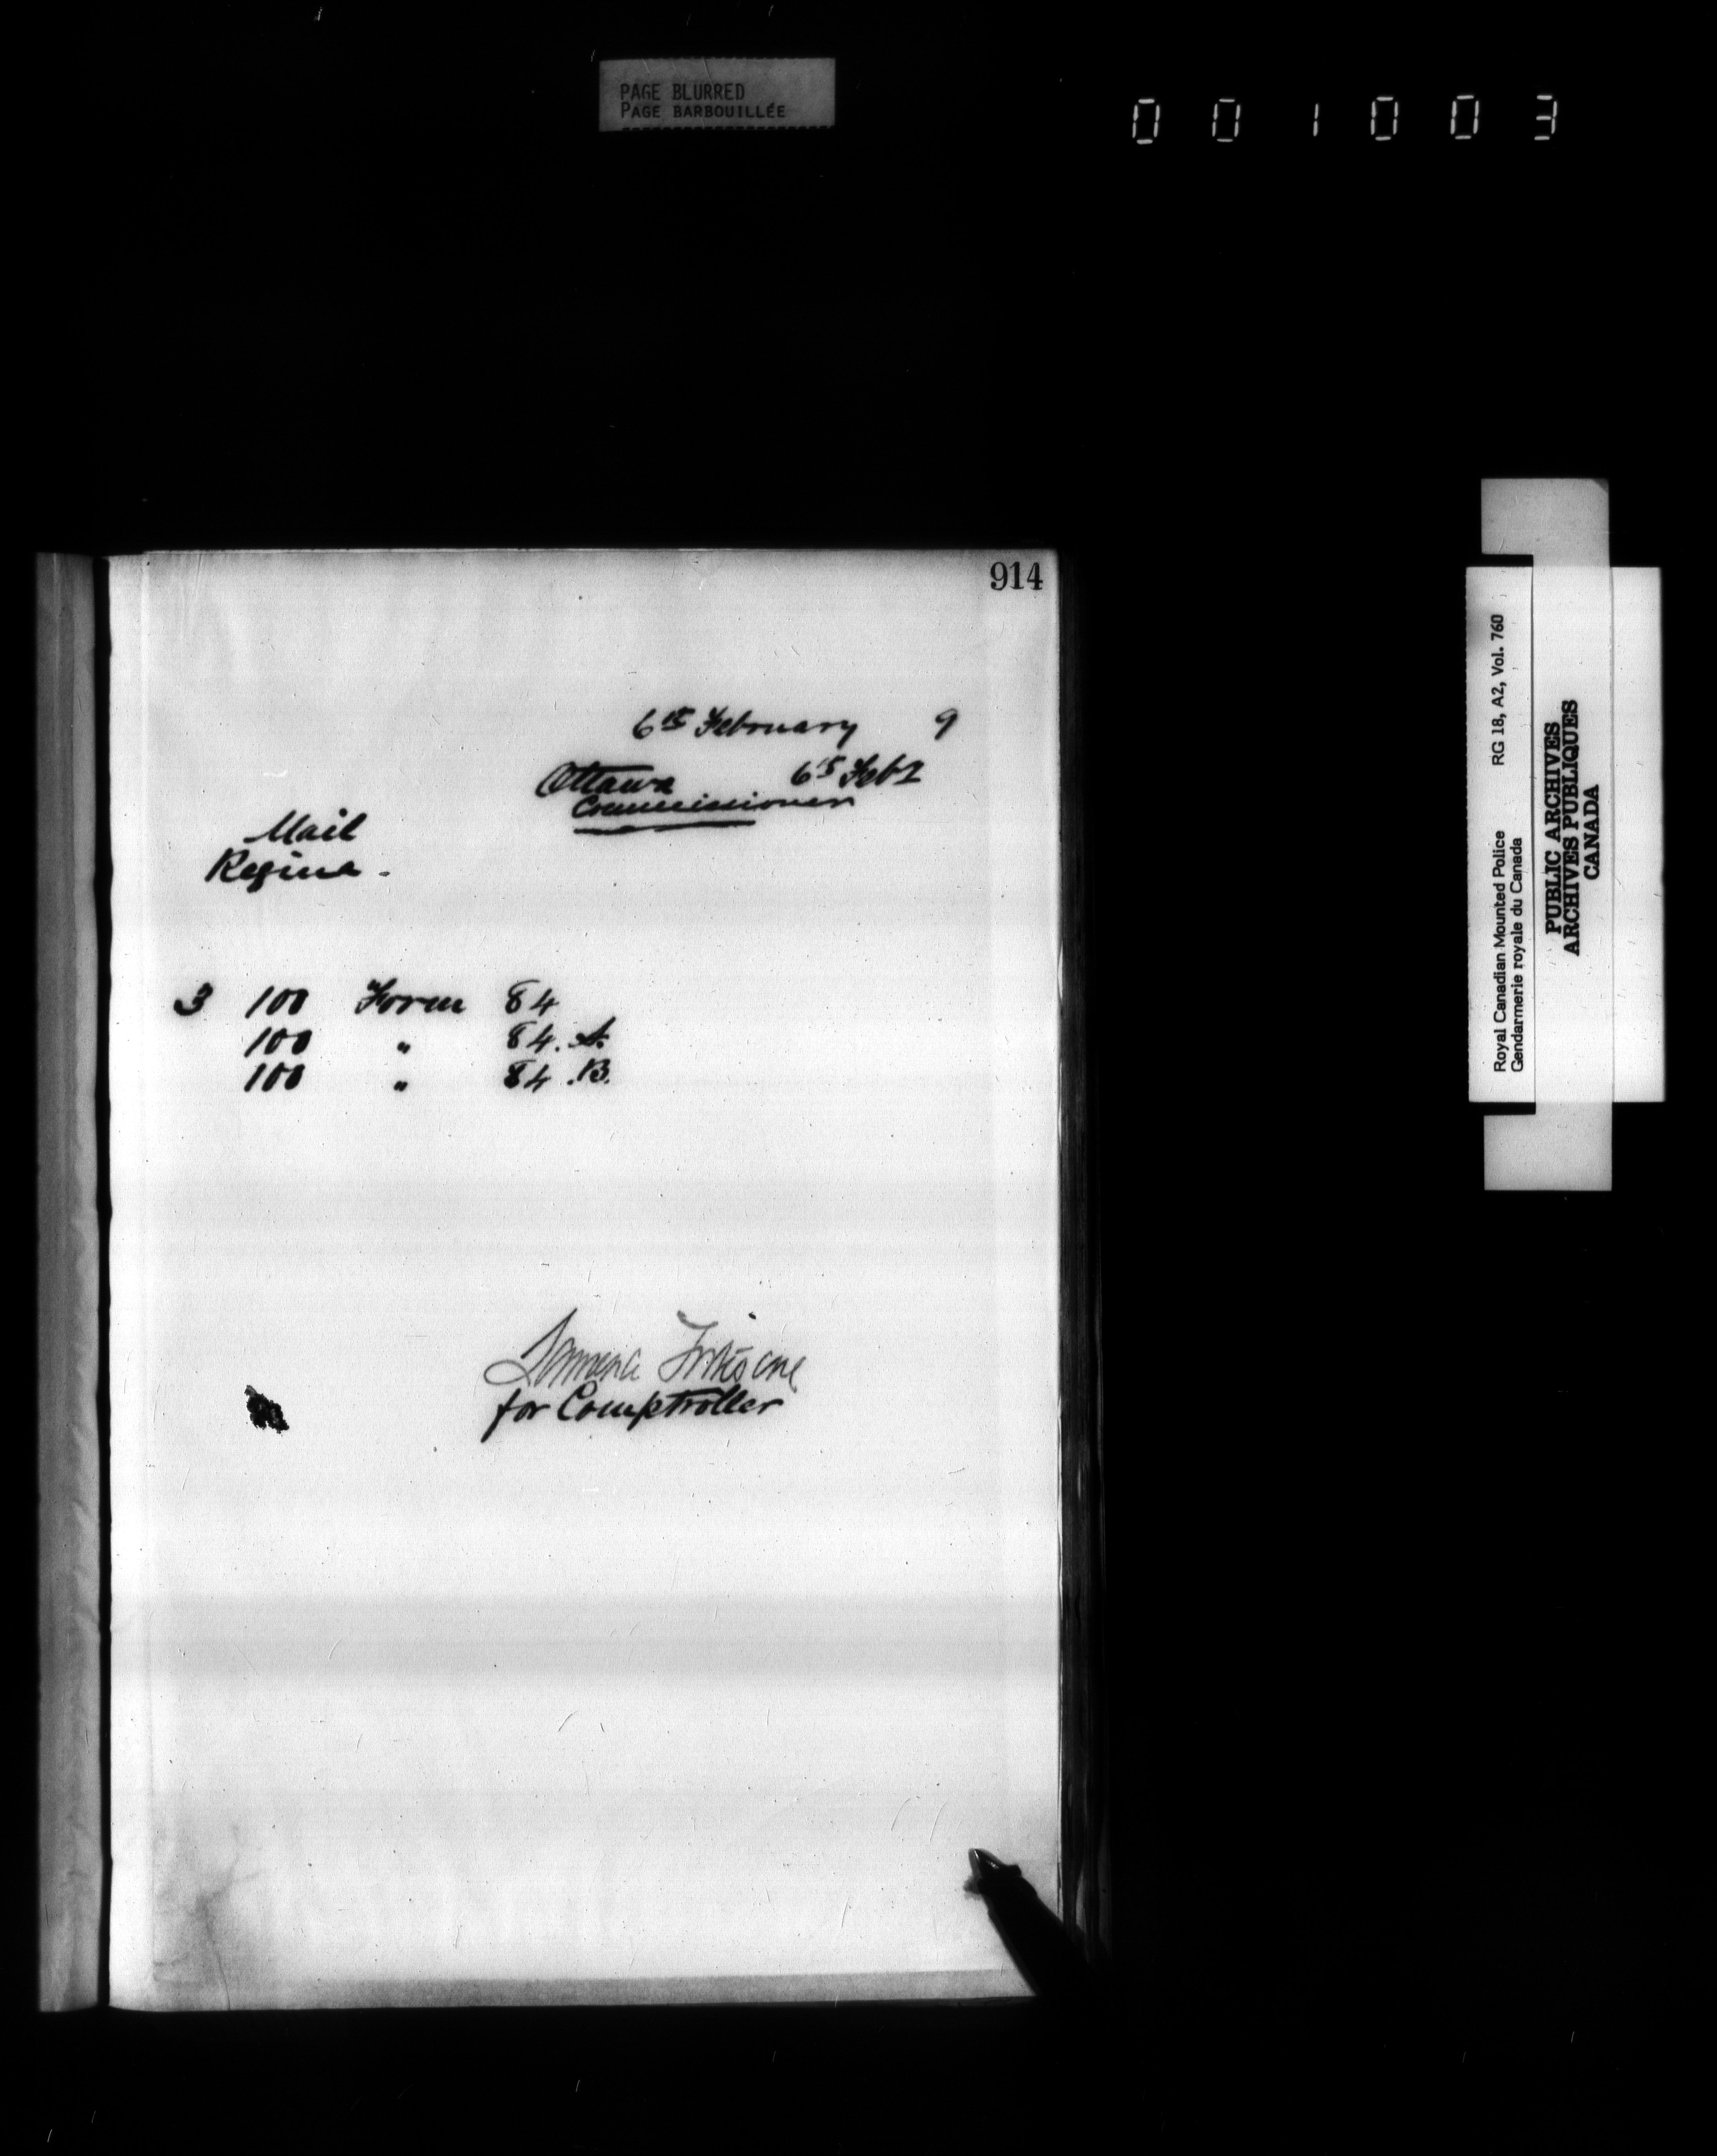 PAGE BLURRED
PAGE BARBOUILLÉE
001003
914
6th February 9
Ottawa 6th Feby
Commissioner
Mail
Regina.
3 100 Form 84
100 " 84. A.
100 " 84. B.
for Comptroller
Royal Canadian Mounted Police RG 18, A2, Vol. 760
Gendarmerie royale du Canada
PUBLIC ARCHIVES
ARCHIVES PUBLIQUES
CANADA